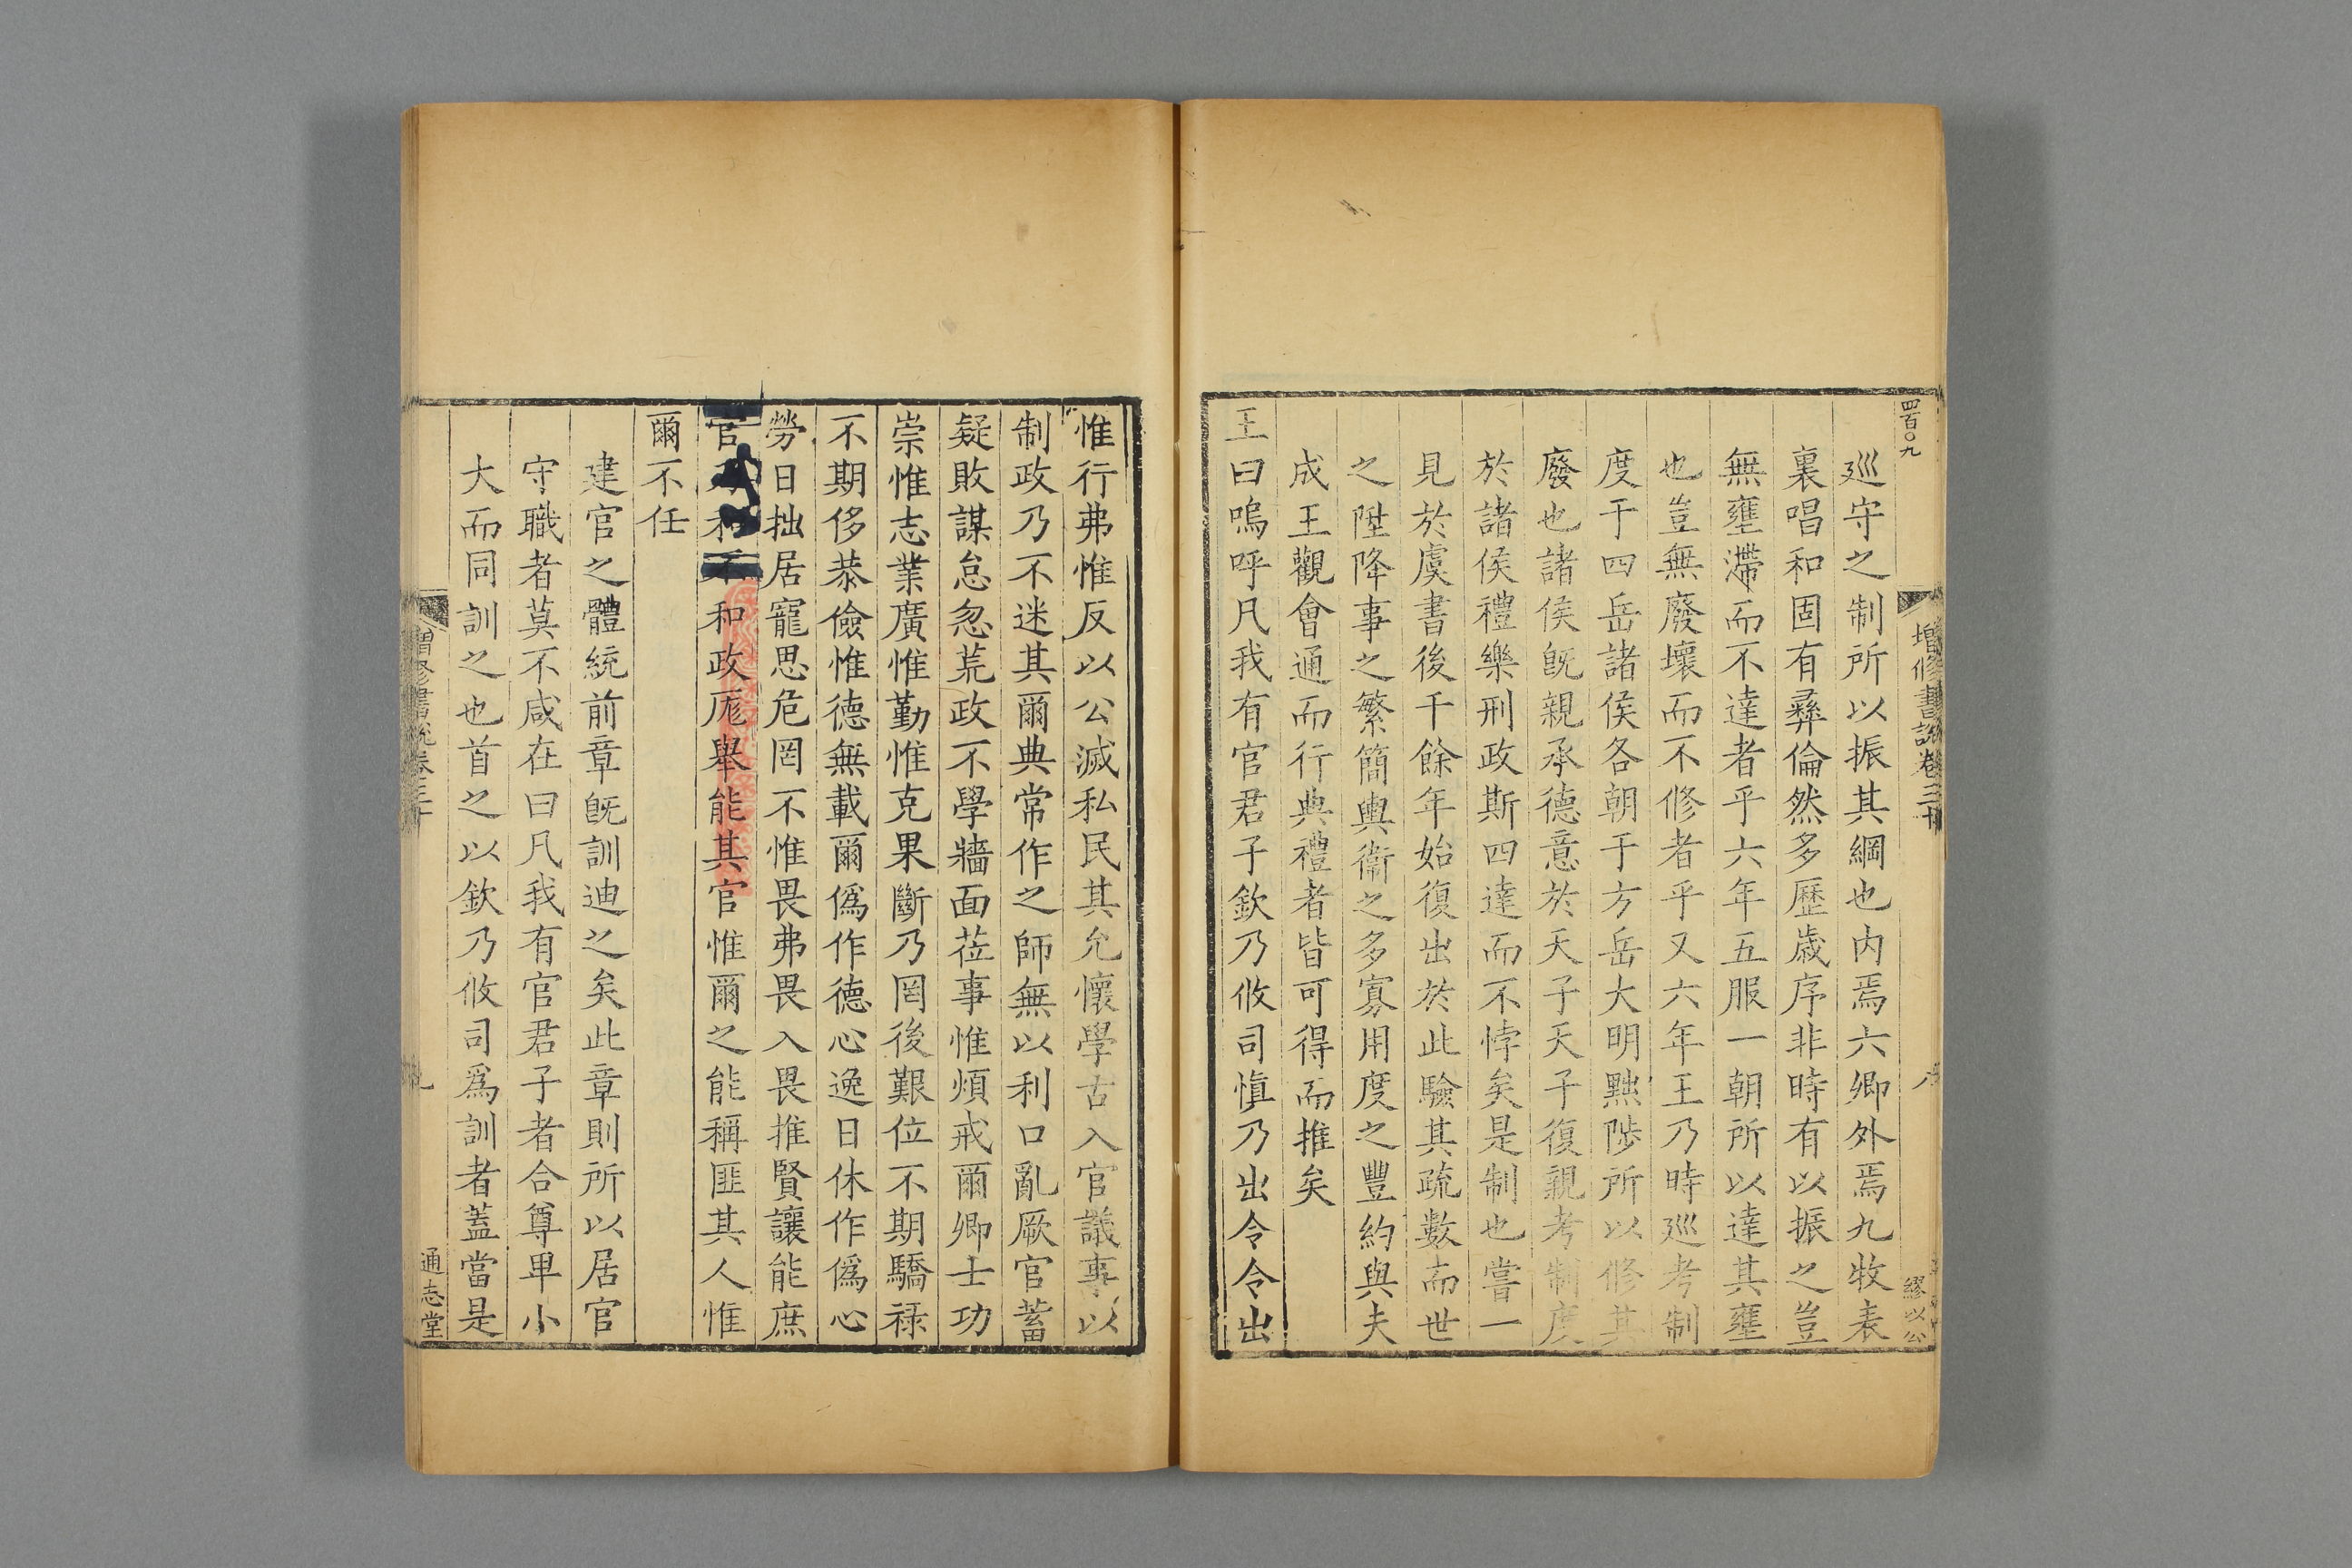 四百〇九
增修書說卷三十
八
繆以公
巡守之制所以振其綱也內焉六卿外焉九牧表
裏唱和固有彞倫然多歷歲序非時有以振之豈
無壅滯而不達者乎六年五服一朝所以達其壅
也豈無廢壞而不修者乎又六年王乃時巡考制
度于四岳諸侯各朝于方岳大明黜陟所以修其
廢也諸侯旣親承德意於天子天子復親考制度
於諸侯禮樂刑政斯四達而不悖矣是制也嘗一
見於虞書後千餘年始復出於此驗其疏數而世
之陞降事之繁簡輿衞之多寡用度之豐約與夫
成王觀會通而行典禮者皆可得而推矣
王曰嗚呼凡我有官君子欽乃攸司愼乃出令令出
惟行弗惟反以公滅私民其允懷學古入官議事以
制政乃不迷其爾典常作之師無以利口亂厥官蓄
疑敗謀怠忽荒政不學牆面莅事惟煩戒爾卿士功
崇惟志業廣惟勤惟克果斷乃罔後艱位不期驕祿
不期侈恭儉惟德無載爾僞作德心逸日休作僞心
勞日拙居寵思危罔不惟畏弗畏入畏推賢讓能庶
官和不和政厖舉能其官惟爾之能稱匪其人惟
爾不任
建官之體統前章旣訓迪之矣此章則所以居官
守職者莫不咸在曰凡我有官君子者合尊卑小
大而同訓之也首之以欽乃攸司爲訓者蓋當是
增修書說卷三十
九
通志堂